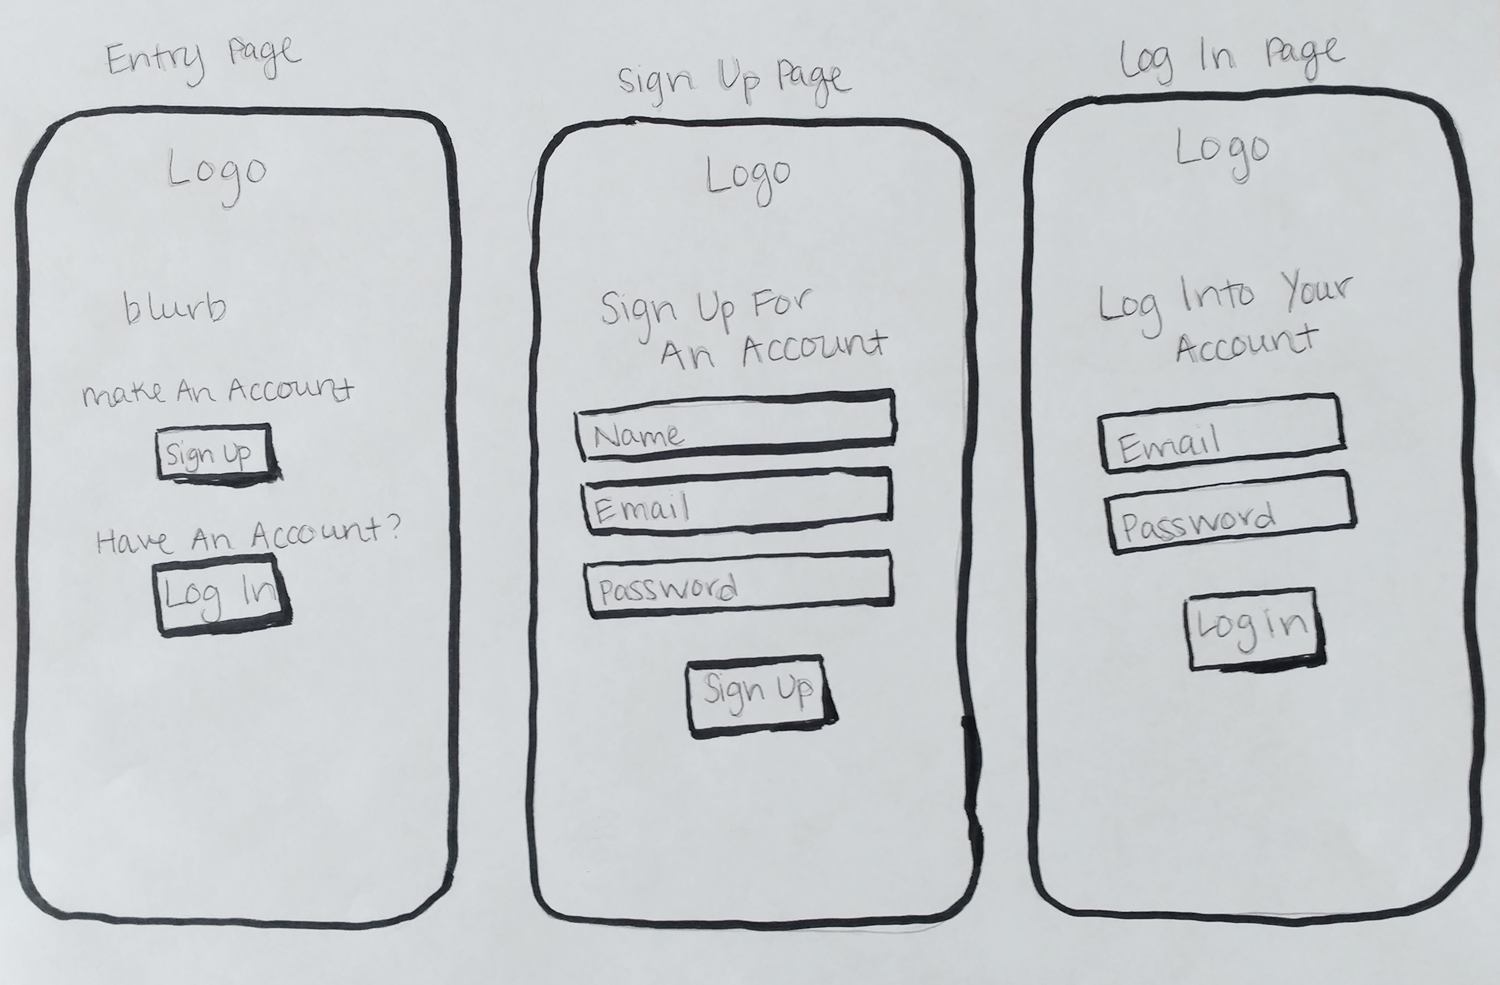 Entry Page
Logo
blurb
make An Account
Sign Up
Have An Account?
Log In
Sign Up Page
Logo
Sign Up For
An Account
Name
Email
Password
Sign Up
Log In Page
Logo
Log Into Your
Account
Email
Password
Log in